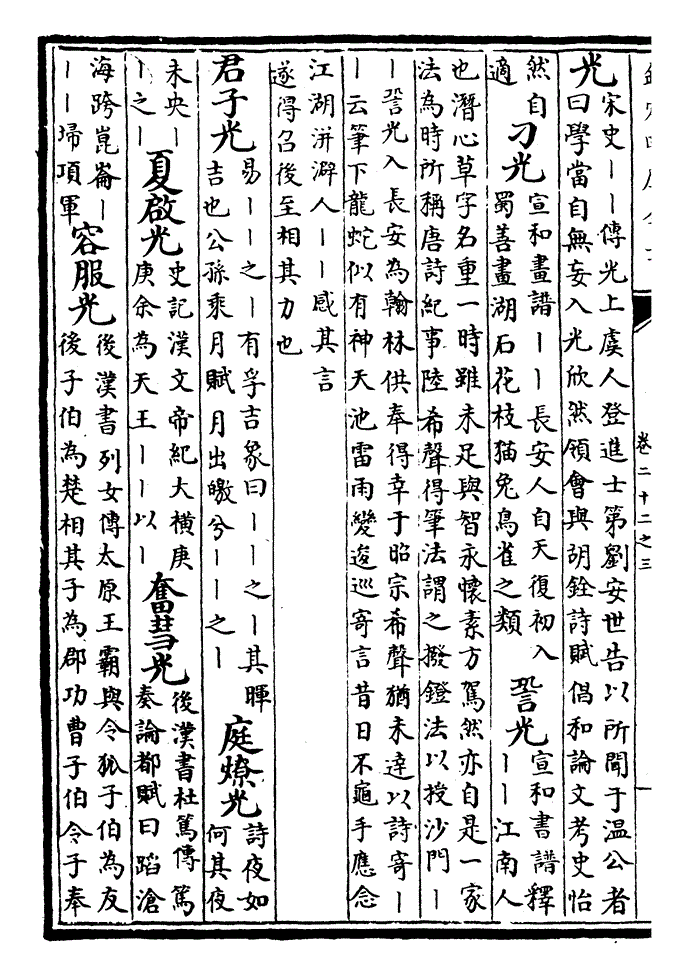 卷二十二之三
光
宋史丨丨傳光上虞人登進士第劉安世告以所聞于温公者
曰學當自無妄入光欣然領會與胡銓詩賦倡和論文考史怡
然自
適
刁光
宣和畫譜丨丨長安人自天復初入
蜀善畫湖石花枝猫兔鳥雀之類
䛒光
宣和書譜釋
丨丨江南人
也潛心草字名重一時雖未足與智永懷素方駕然亦自是一家
法為時所稱唐詩紀事陸希聲得筆法謂之撥鐙法以授沙門丨
丨䛒光入長安為翰林供奉得幸于昭宗希聲猶未達以詩寄丨
丨云筆下龍蛇似有神天池雷雨變逡巡寄言昔日不龜手應念
江湖洴澼人丨丨感其言
遂得召後至相其力也
君子光
易丨丨之丨有孚吉象曰丨丨之丨其暉
吉也公孫乘月賦月出皦兮丨丨之丨
庭燎光
詩夜如
何其夜
未央丨
丨之丨
夏啟光
史記漢文帝紀大橫庚
庚余為天王丨丨以丨
奮彗光
後漢書杜篤傳篤
奏論都賦曰蹈滄
海跨崑崙丨
丨丨埽項軍
容服光
後漢書列女傳太原王霸與令狐子伯為友
後子伯為楚相其子為郡功曹子伯令子奉